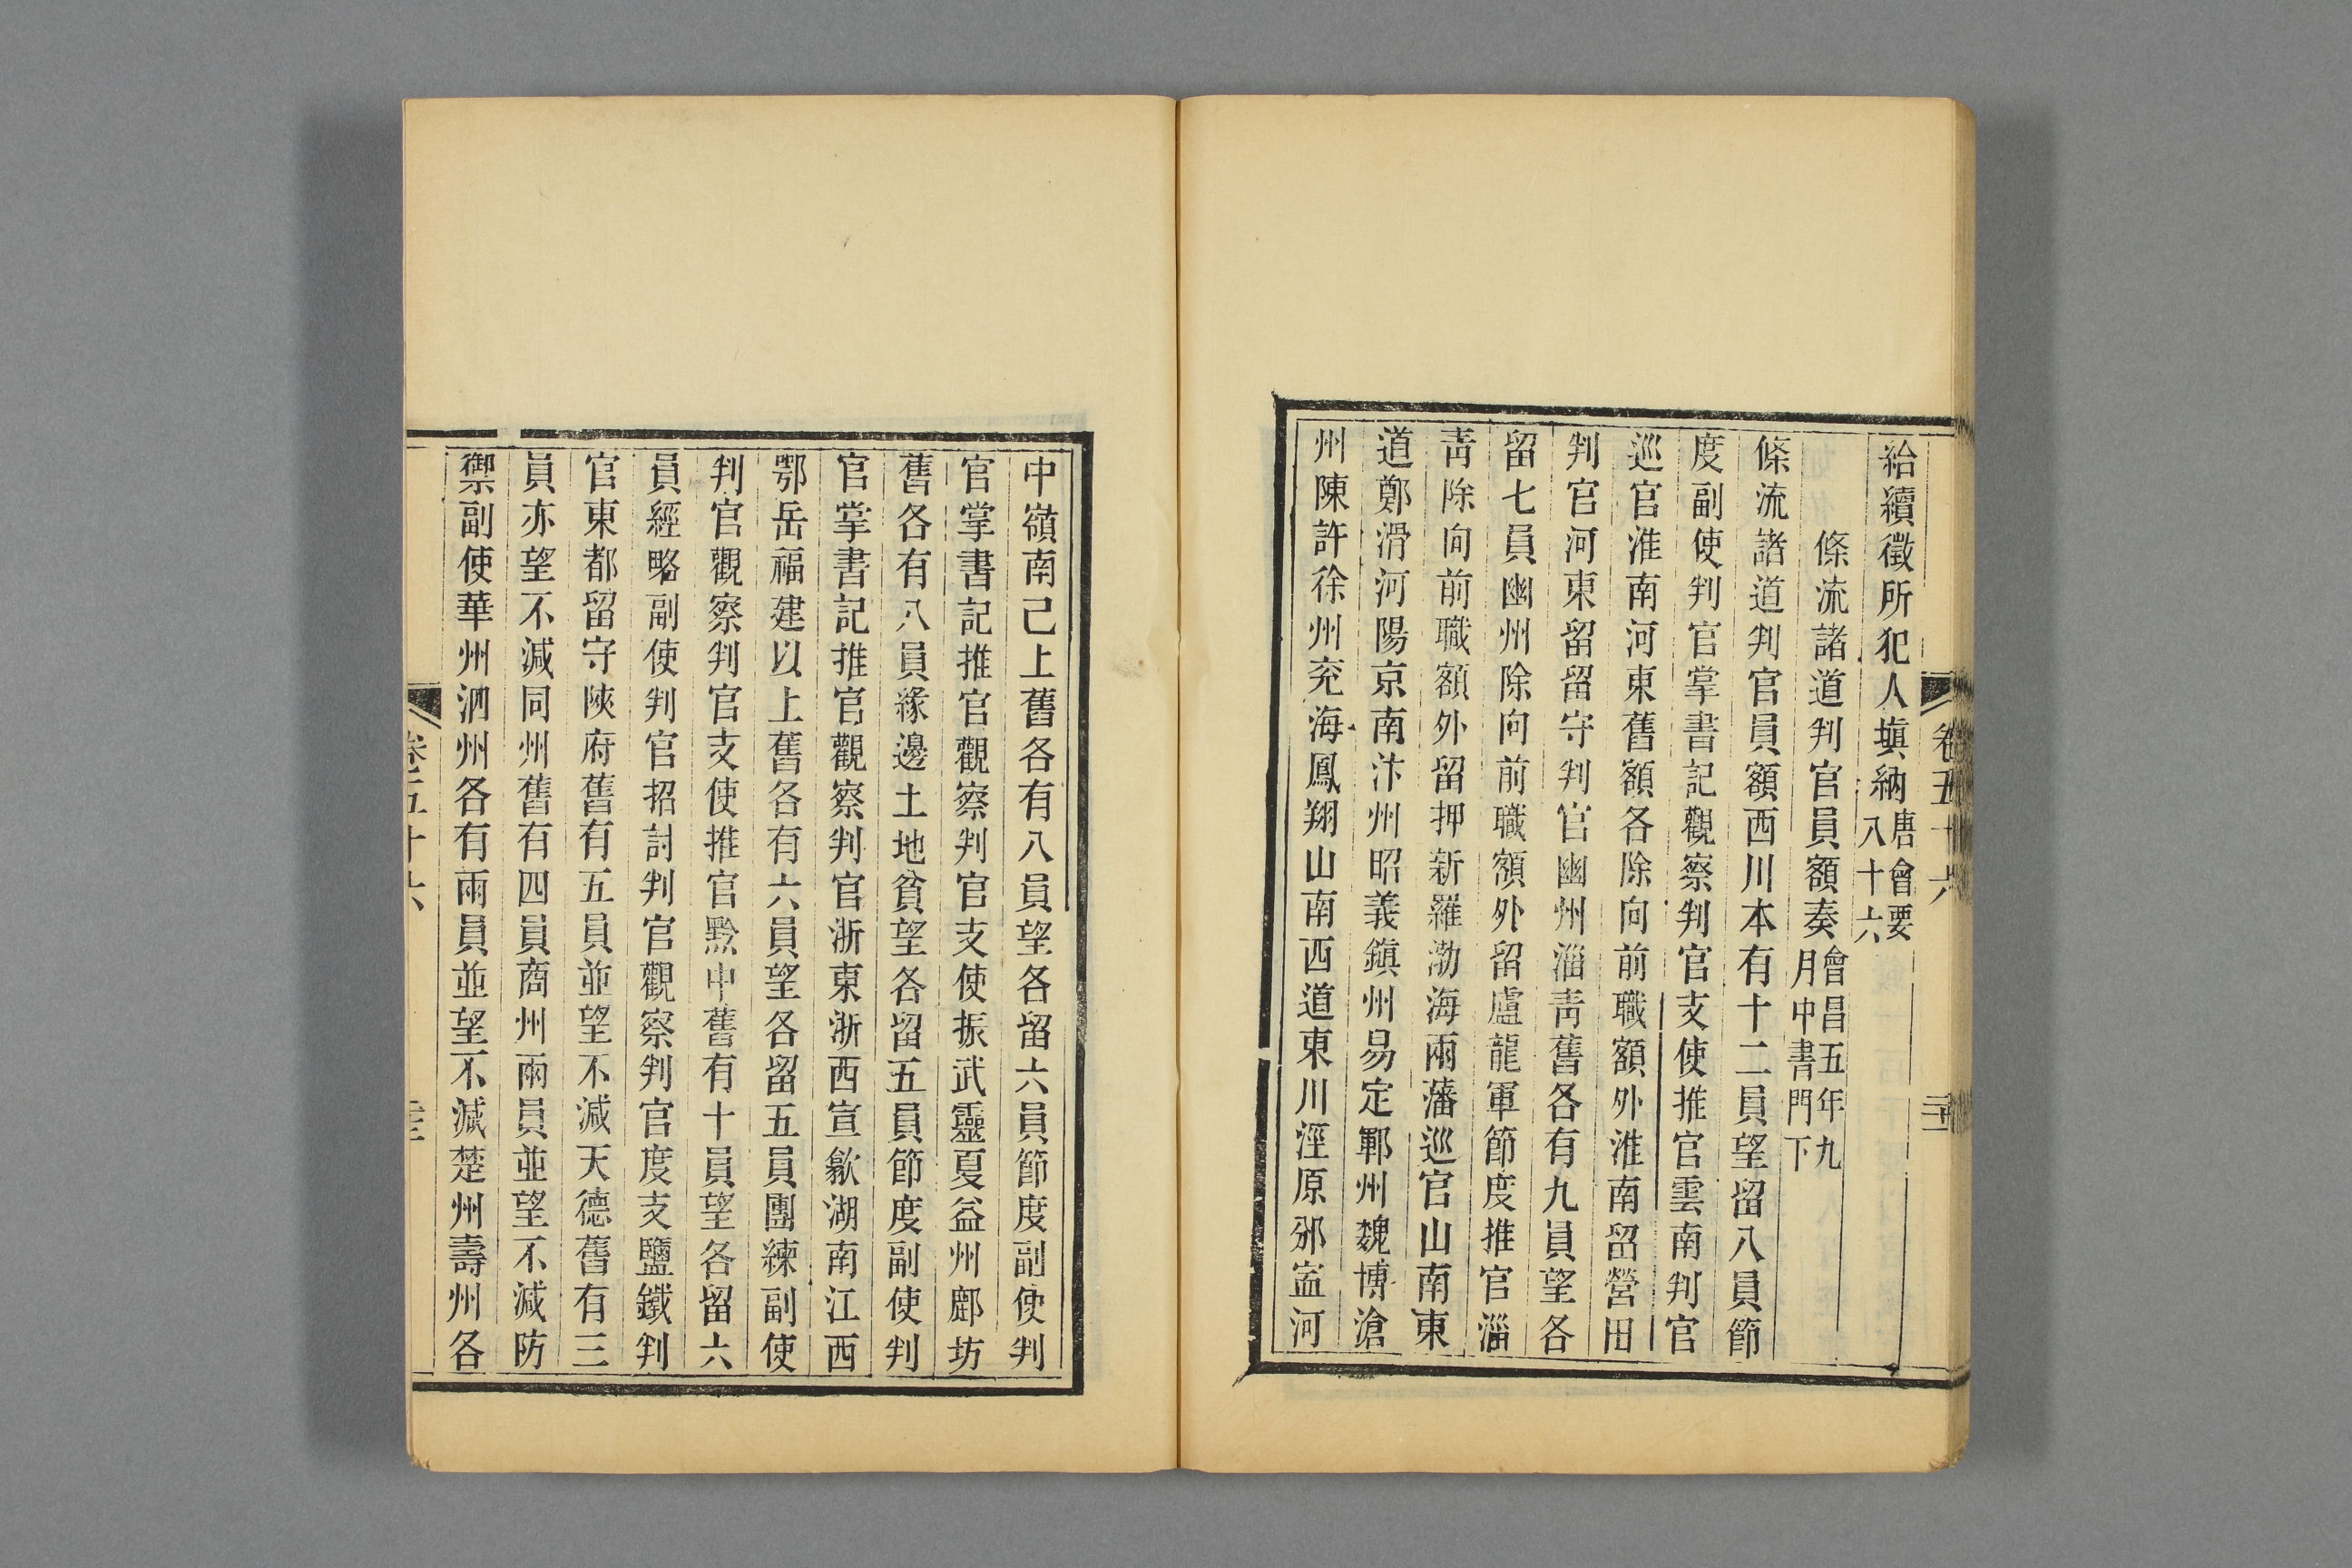 給續徵所犯人塡納唐會要八十六
條流諸道判官員額奏會昌五年九月中書門下
條流諸道判官員額西川本有十二員望留八員節
度副使判官掌書記觀察判官支使推官雲南判官
巡官淮南河東舊額各除向前職額外淮南留營田
判官河東留留守判官幽州淄靑舊各有九員望各
留七員幽州除向前職額外留盧龍軍節度推官淄
靑除向前職額外留押新羅渤海兩藩巡官山南東
道鄭滑河陽京南汴州昭義鎭州易定鄆州魏博滄
州陳許徐州兖海鳳翔山南西道東川涇原邠寍河
中嶺南己上舊各有八員望各留六員節度副使判
官掌書記推官觀察判官支使振武靈夏益州鄜坊
舊各有八員緣邊土地貧望各留五員節度副使判
官掌書記推官觀察判官浙東浙西宣歙湖南江西
鄂岳福建以上舊各有六員望各留五員團練副使
判官觀察判官支使推官黔中舊有十員望各留六
員經略副使判官招討判官觀察判官度支鹽鐵判
官東都留守陝府舊有五員並望不減天德舊有三
員亦望不減同州舊有四員商州兩員並望不減防
禦副使華州泗州各有兩員並望不減楚州壽州各
卷五十六